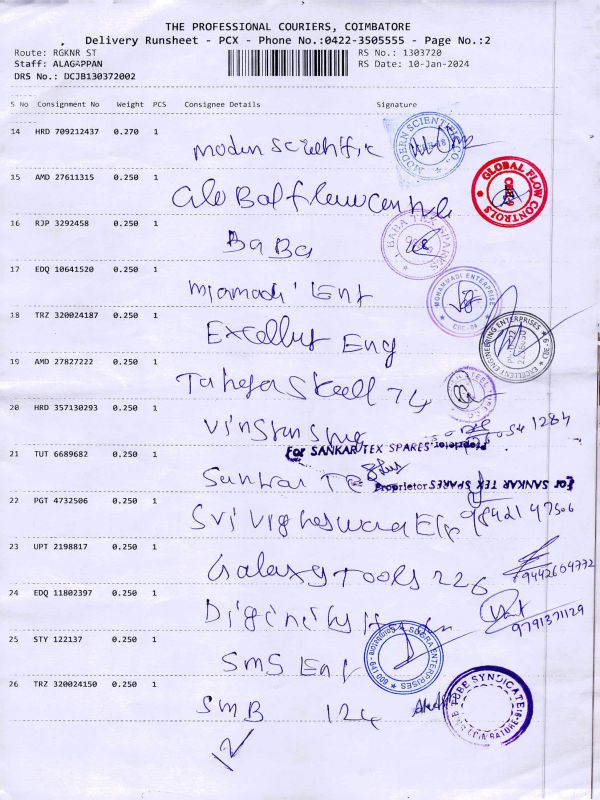 THE PROFESSIONAL COURIERS, COIMBATORE
Delivery Runsheet - PCX - Phone No.:0422-3505555 - Page No.:2
Route: RGKNR ST RS No.: 1303720
Staff: ALAGAPPAN RS Date: 10-Jan-2024
DRS No.: DCJB130372002
S No Consignment No Weight PCS Consignee Details Signature
14 HRD 709212437 0.270 1
Modern Scientific
MODERN SCIENTIFIC CO.
15 AMD 27611315 0.250 1
Global flow
GLOBAL FLOW CONTROLS
16 RJP 3292458 0.250 1
BaBa
BABA TEX SPARES
17 EDQ 10641520 0.250 1
Ent
MOHAMMADI ENTERPRISE
18 TRZ 320024187 0.250 1
Eng
EXCELLENT ENGINEERING ENTERPRISES
19 AMD 27827222 0.250 1
74
20 HRD 357130293 0.250 1
For SANKAR TEX SPARES
Proprietor
21 TUT 6689682 0.250 1
Sankar TE
For SANKAR TEX SPARES
Proprietor
22 PGT 4732506 0.250 1
Sri Vigneswara 9842147506
23 UPT 2198817 0.250 1
Galaxy Tools 226
9442604772
24 EDQ 11802397 0.250 1
9791371129
25 STY 122137 0.250 1
SMS Ent
ENTERPRISES
26 TRZ 320024150 0.250 1
SMB 124
TUBE SYNDICATE
12